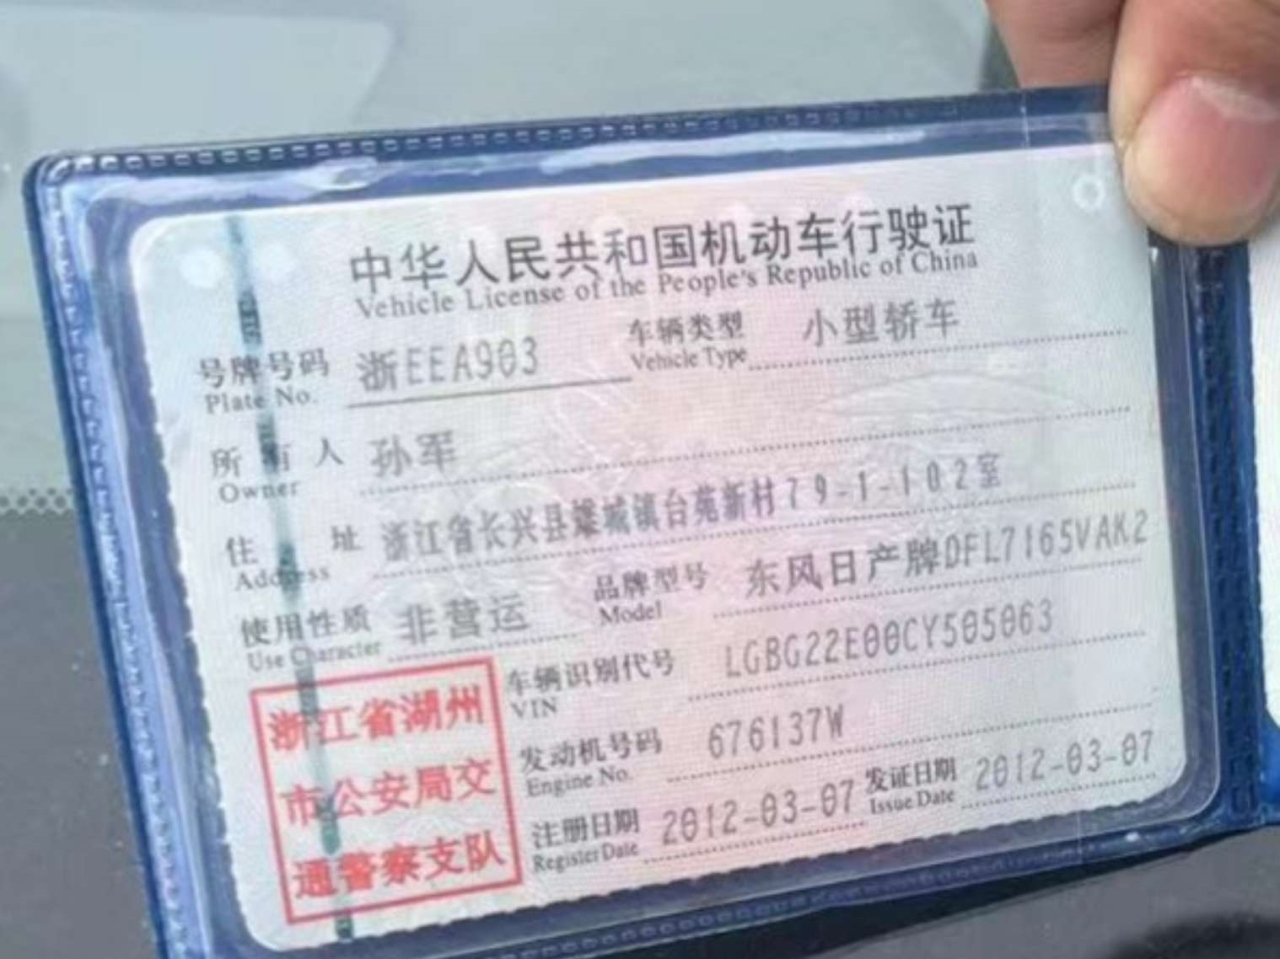 中华人民共和国机动车行驶证
Vehicle License of the People's Republic of China
号牌号码 浙EEA903 车辆类型 小型轿车
Plate No. Vehicle Type
所有人 孙军
Owner
住址 浙江省长兴县雉城镇台苑新村79-1-102室
Address
使用性质 非营运 品牌型号 东风日产牌DFL7165VAK2
Use Character Model
车辆识别代号 LGBG22E00CY505063
VIN
发动机号码 676137W
Engine No.
注册日期 2012-03-07 发证日期 2012-03-07
Register Date Issue Date
浙江省湖州
市公安局交
通警察支队